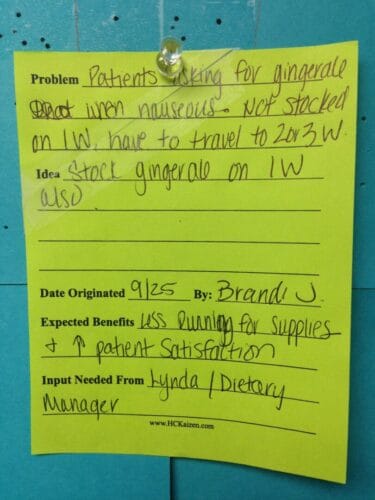 Problem Patients asking for gingerale
when nauseous. Not stocked
on 1W, have to travel to 2 or 3 W.
Idea Stock gingerale on 1W
also.
Date Originated 9/25 By: Brandi J.
Expected Benefits less running for supplies
+ ↑ patient satisfaction
Input Needed From Lynda / Dietary
Manager
www.HCKaizen.com